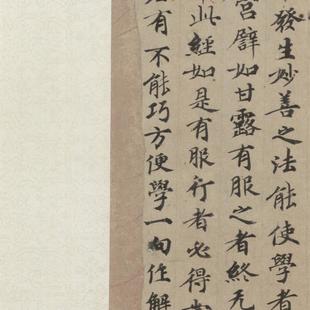 發生妙善之法能使學者
宮譬如甘露有服之者終无
此經如是有服行者必得
有不能巧方便學一句解